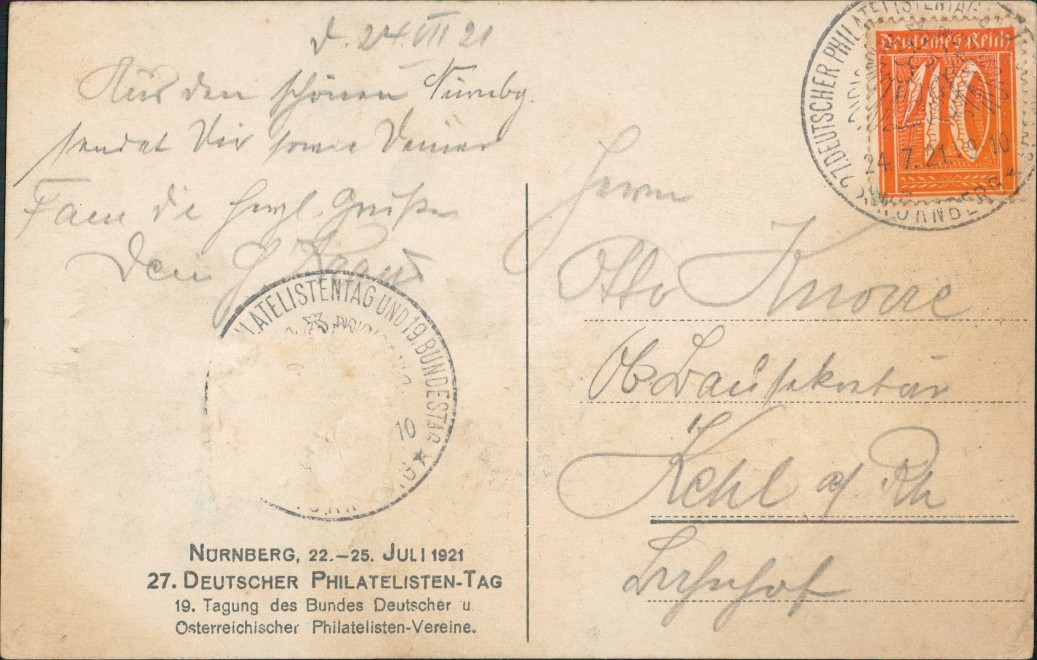 d. 24. VII 21
Aus dem schönen Nürnbg.
sendet Dir sowie Deiner
Fam die herzl Grüße
Dein G
ILATELISTENTAG UND 19. BUNDESTAG
10
NÜRNBERG, 22.–25. JULI 1921
27. DEUTSCHER PHILATELISTEN-TAG
19. Tagung des Bundes Deutscher u.
Österreichischer Philatelisten-Vereine.
27. DEUTSCHER PHILATELISTENTAG
Deutsches Reich
40
24.7.21 10
NÜRNBERG
Herrn
Otto Knorre
Ob Bausekretär
Kehl a/Rh
Bahnhof